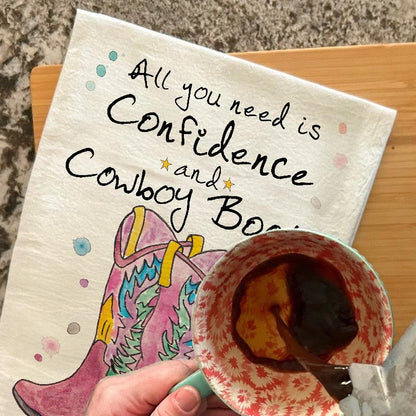 All you need is
Confidence
and
Cowboy Boo